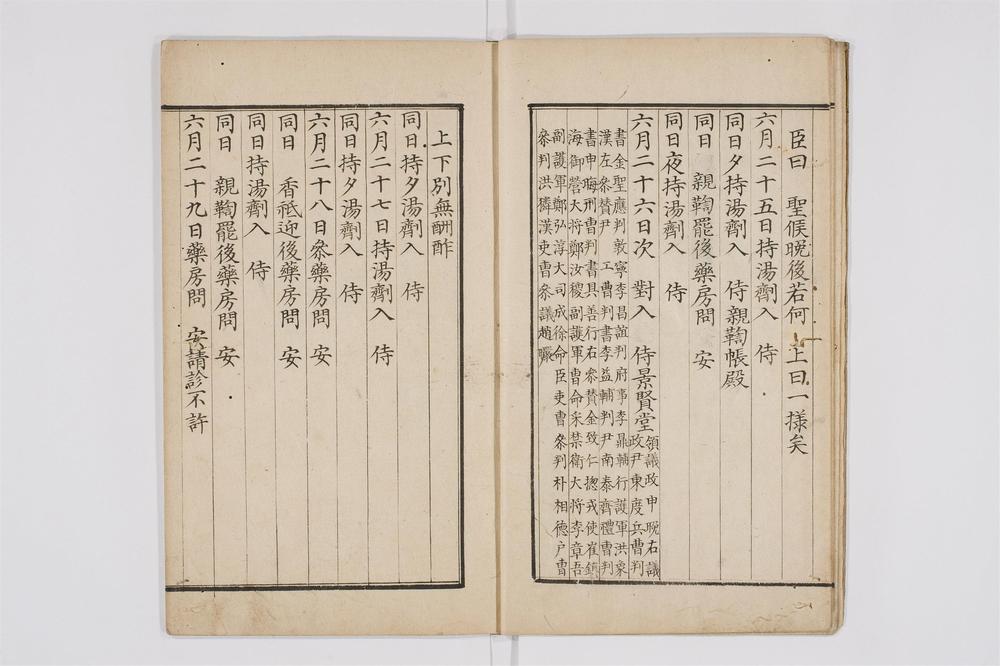 臣曰　聖候晩後若何　上曰一様矣
六月二十五日持湯劑入　侍
同日夕持湯劑入　侍親鞫帳殿
同日　親鞫罷後藥房問　安
同日夜持湯劑入　侍
六月二十六日次　對入　侍景賢堂領議政申晩右議
政尹東度兵曹判
書金聖應判敦寧李昌誼判府事李鼎輔行護軍洪象
漢左參賛尹　工曹判書李益輔判尹南泰齊禮曹判
書申晦刑曹判書具善行右參賛金致仁揔戎使崔鎮
海御營大将鄭汝稷副護軍曺命采禁衛大将李章吾
副護軍鄭弘淳大司成徐命臣吏曹參判朴相德戶曹
參判洪獜漢吏曹參議趙曮
上下別無酬酢
同日持夕湯劑入　侍
六月二十七日持湯劑入　侍
同日持夕湯劑入　侍
六月二十八日參藥房問　安
同日　香祗迎後藥房問　安
同日持湯劑入　侍
同日　親鞫罷後藥房問　安
六月二十九日藥房問　安請診不許